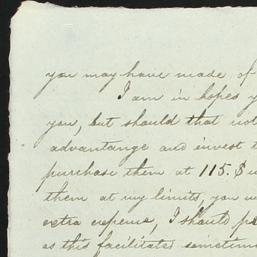 you may have made of
I am in hopes y
you, but should that not
advantange and invest t
purchase them at 115. $
them at my limits, you w
extra expense, I should p
as this facilitates sometim